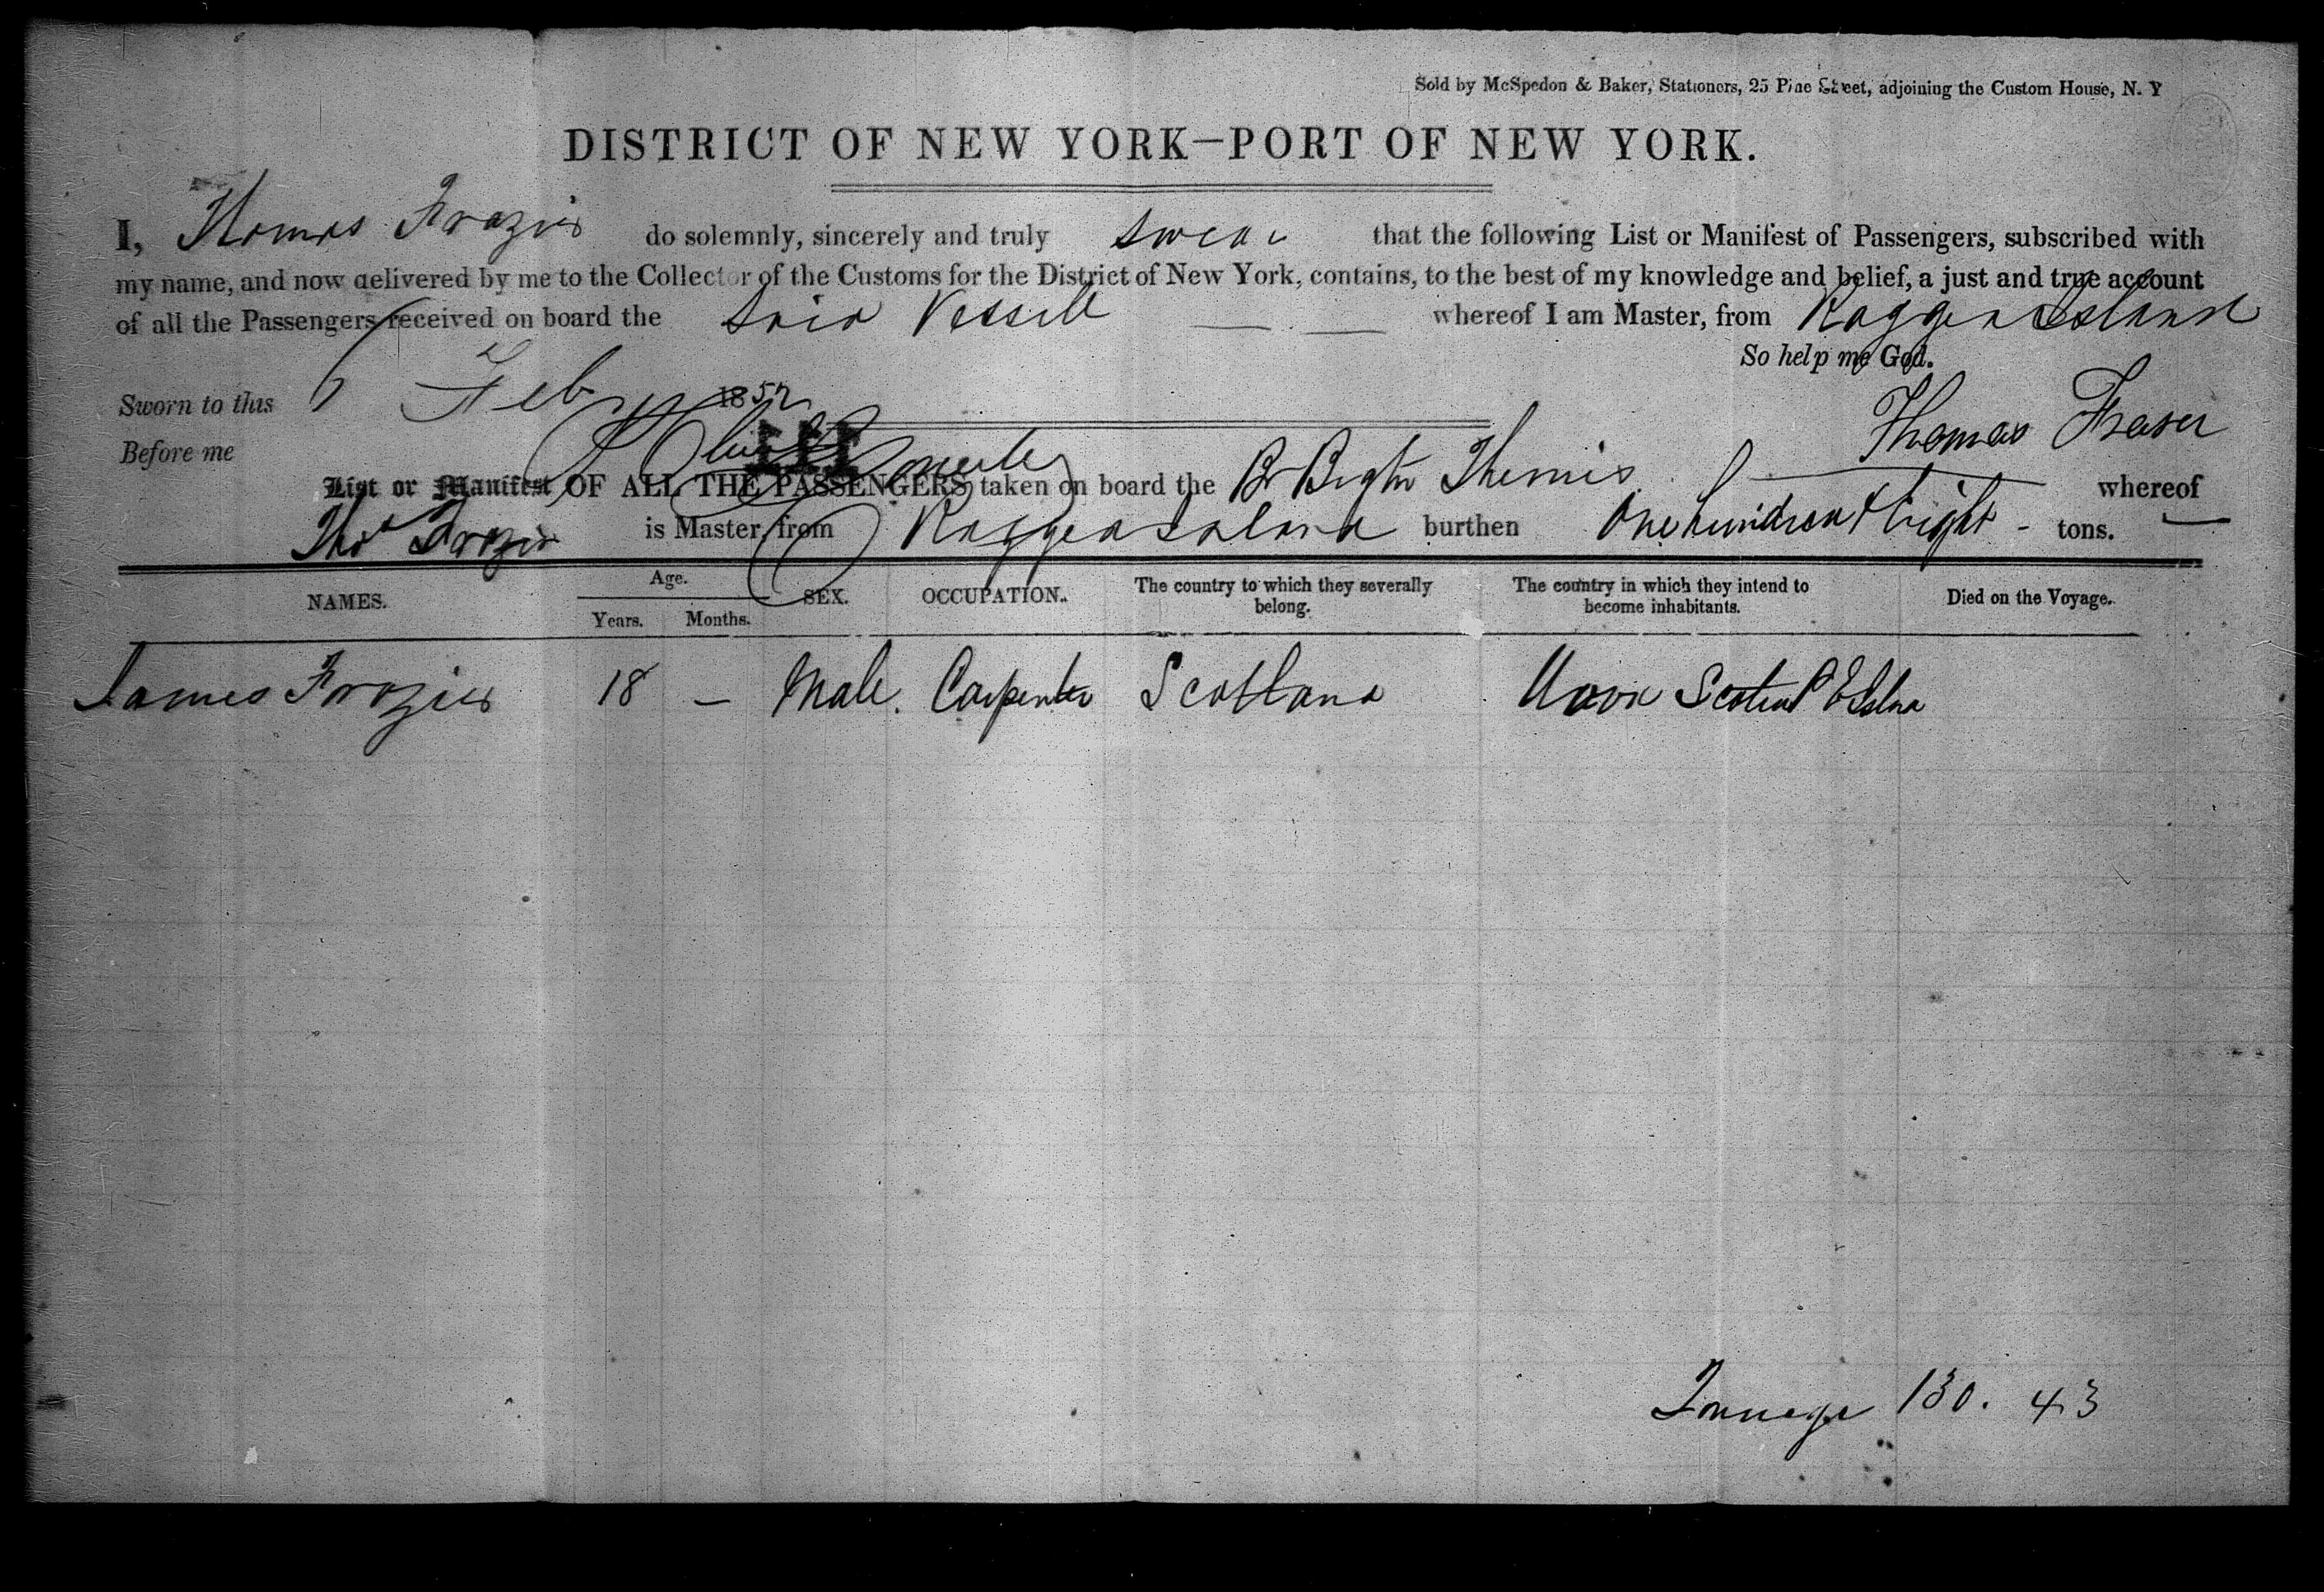 Sold by McSpedon & Baker, Stationers, 25 Pine Street, adjoining the Custom House, N. Y
DISTRICT OF NEW YORK—PORT OF NEW YORK.
I, Thomas Frazier do solemnly, sincerely and truly swear that the following List or Manifest of Passengers, subscribed with
my name, and now delivered by me to the Collector of the Customs for the District of New York, contains, to the best of my knowledge and belief, a just and true account
of all the Passengers received on board the said Vessell whereof I am Master, from Ragged Island
So help me God.
Sworn to this Feby 1852
Thomas Fraser
Before me
111
List or Manifest OF ALL THE PASSENGERS taken on board the Br Brgtn Themis whereof
Thos Frazier is Master, from Ragged Island burthen One hundred & Eight - tons.
NAMES. Age. Years. Months. SEX. OCCUPATION. The country to which they severally belong. The country in which they intend to become inhabitants. Died on the Voyage.
James Frazier 18 — Male. Carpenter Scotland Nova Scotia P E Islnd
Tonnage 130. 43